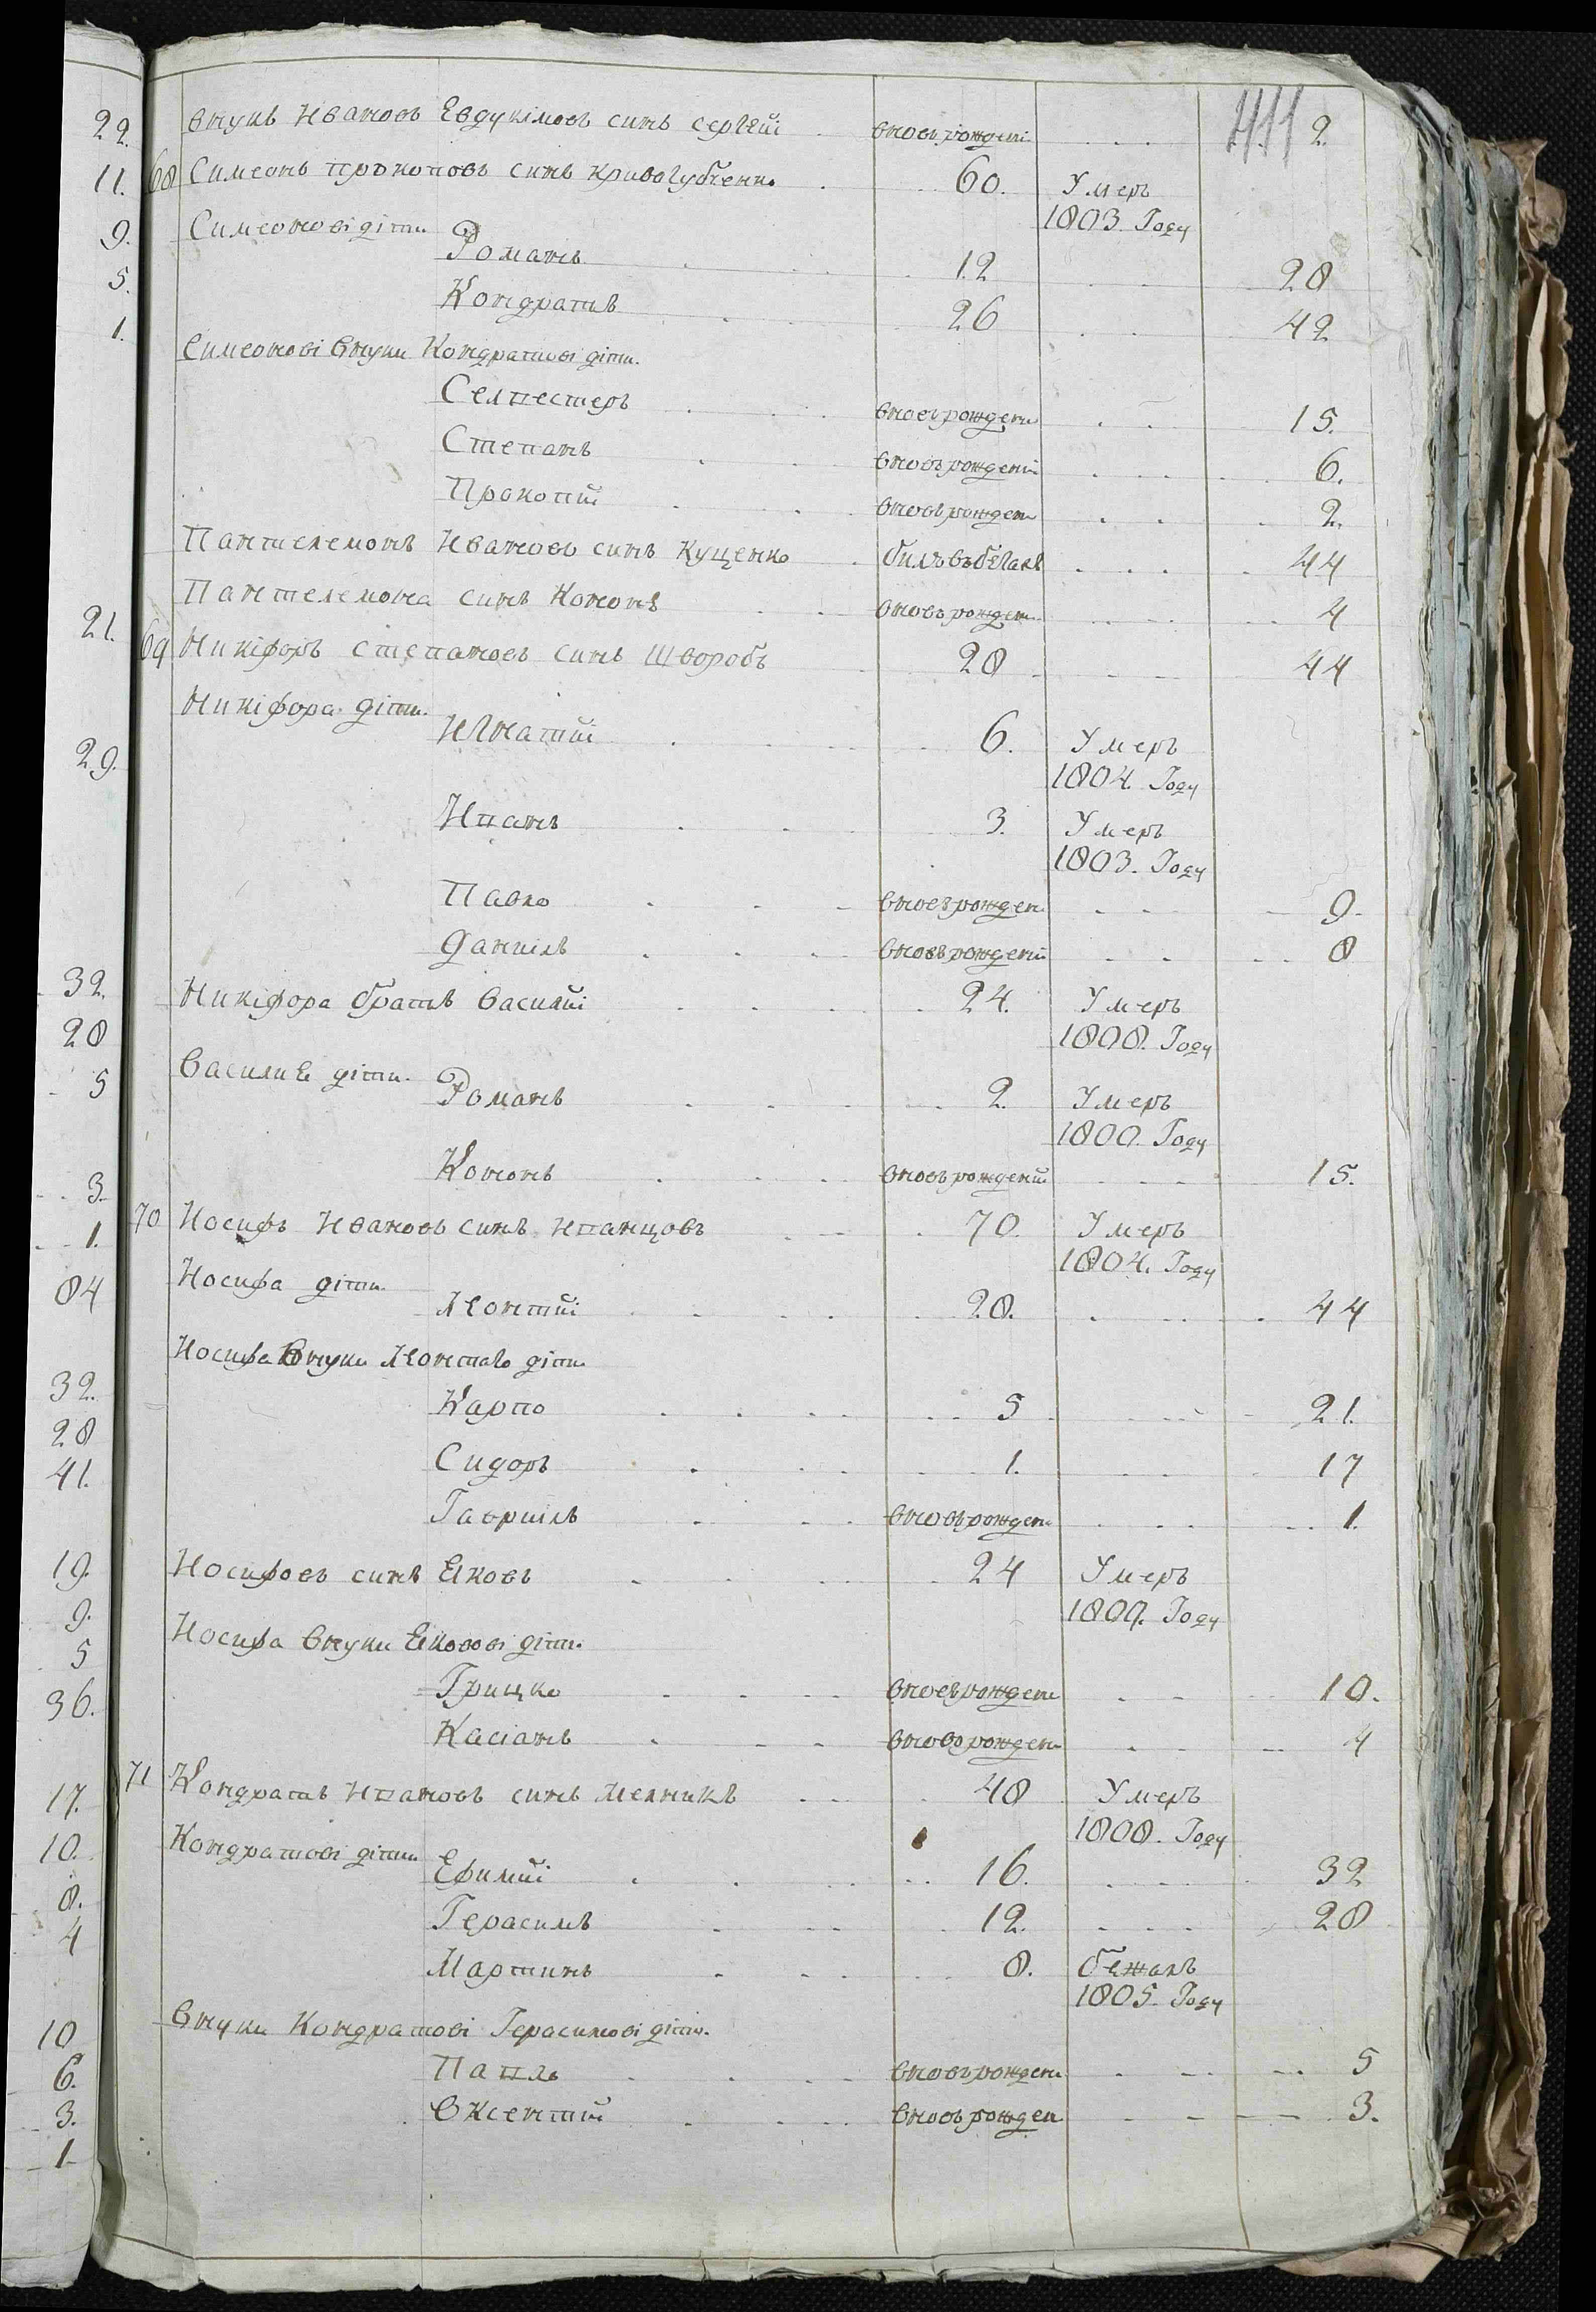 411
внукъ Ивановъ Евдукімовъ синъ сергѣй вновь рожденъ 2.
68 Симеонъ прокоповъ синъ кривогубченко 60. Умеръ
1803. Году
Симеонові діти Романъ 12 28
Кондратъ 26 42
Симеонові внуки Кондратові діти.
Селпестеръ вновь рожден 15.
Степанъ вновь рожденъ 6.
Прокопій вновь рожден 2.
Пантелемонъ Ивановъ синъ Куценко билъ въ бѣгахъ 44
Пантелемона синъ Кононъ вновь рожден 4
69 Никіфоръ степановъ синъ Шворобъ 28 44
Никіфора діти.
Игнатій 6. Умеръ
1804. Году
Ипанъ 3. Умеръ
1803. Году
Павло вновь рожден 9.
Даниілъ вновь рожденъ 8
Никіфора братъ Василій 24. Умеръ
1808. Году
Василиѣ діти. Романъ 2. Умеръ
1800. Году
Кононъ вновь рожденій 15.
70 Иосифъ Ивановъ синъ Ипанцовъ 70. Умеръ
1804. Году
Иосифа діти.
Леонтій 28. 44
Иосифа внуки Леонтаго діти
Карпо 5 21.
Сидоръ 1. 17
Гавриілъ вновь рожден 1.
Иосифовъ синъ Яковъ 24 Умеръ
1809. Году
Иосифа внуки Яковові діти.
Грицко вновь рожден 10.
Касіанъ вновь рожден 4
71 Кондратъ Ипановъ синъ Мелникъ 48 Умеръ
1808. Году
Кондратові діти Ефимій 16. 32
Герасимъ 12. 28
Мартинъ 8. бежалъ
1805. Году
Внуки Кондратові Герасимові діти.
Папло вновь рожден 5
Оксентій вновь рожден 3.
22.
11.
9.
5.
1.
21.
29.
32.
28
5
3.
1.
84
32.
28
41.
19.
9.
5
36.
17.
10.
8.
4
10
6.
3.
1.